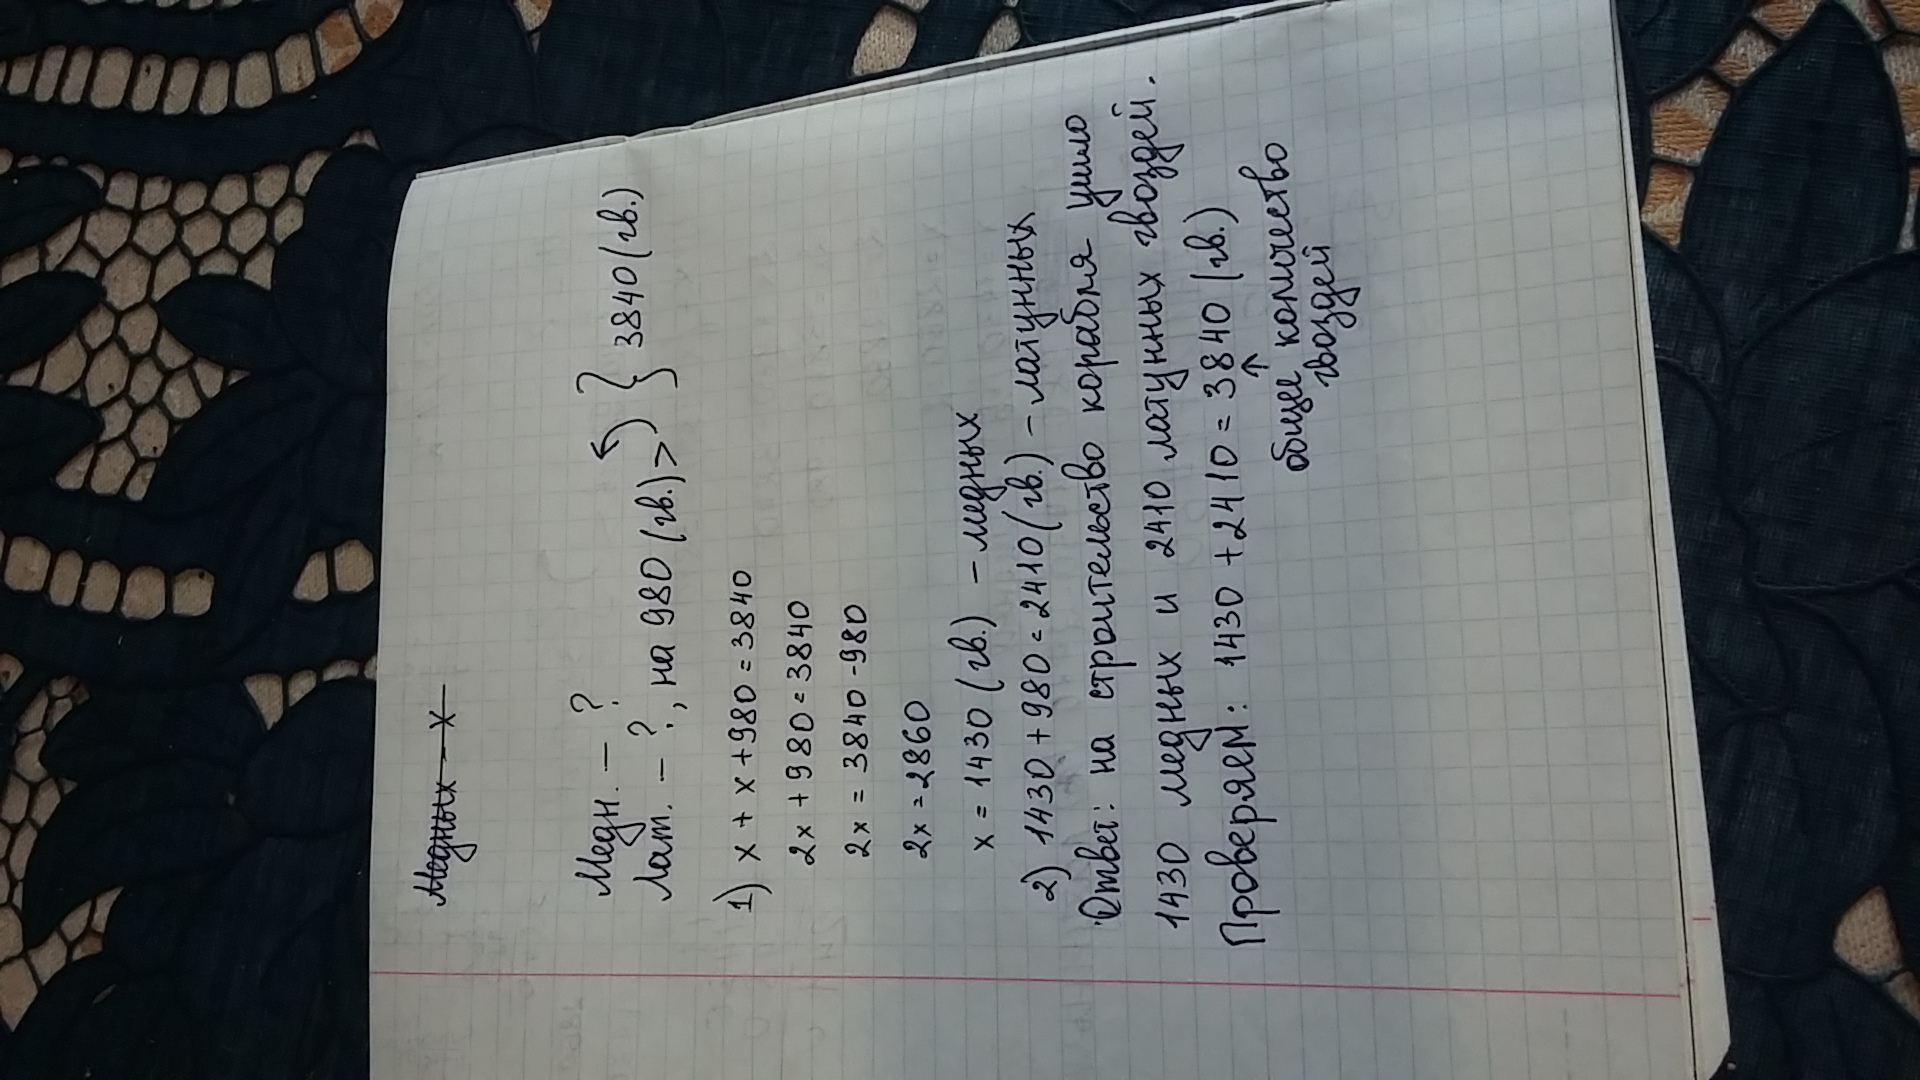 Медных – х
Медн. – ?
Лат. – ?, на 980 (гв.) > } 3840 (гв.)
1) х + х + 980 = 3840
2х + 980 = 3840
2х = 3840 - 980
2х = 2860
х = 1430 (гв.) – медных
2) 1430 + 980 = 2410 (гв.) – латунных
Ответ: на строительство корабля ушло
1430 медных и 2410 латунных гвоздей.
Проверяем: 1430 + 2410 = 3840 (гв.)
↑
общее количество
гвоздей